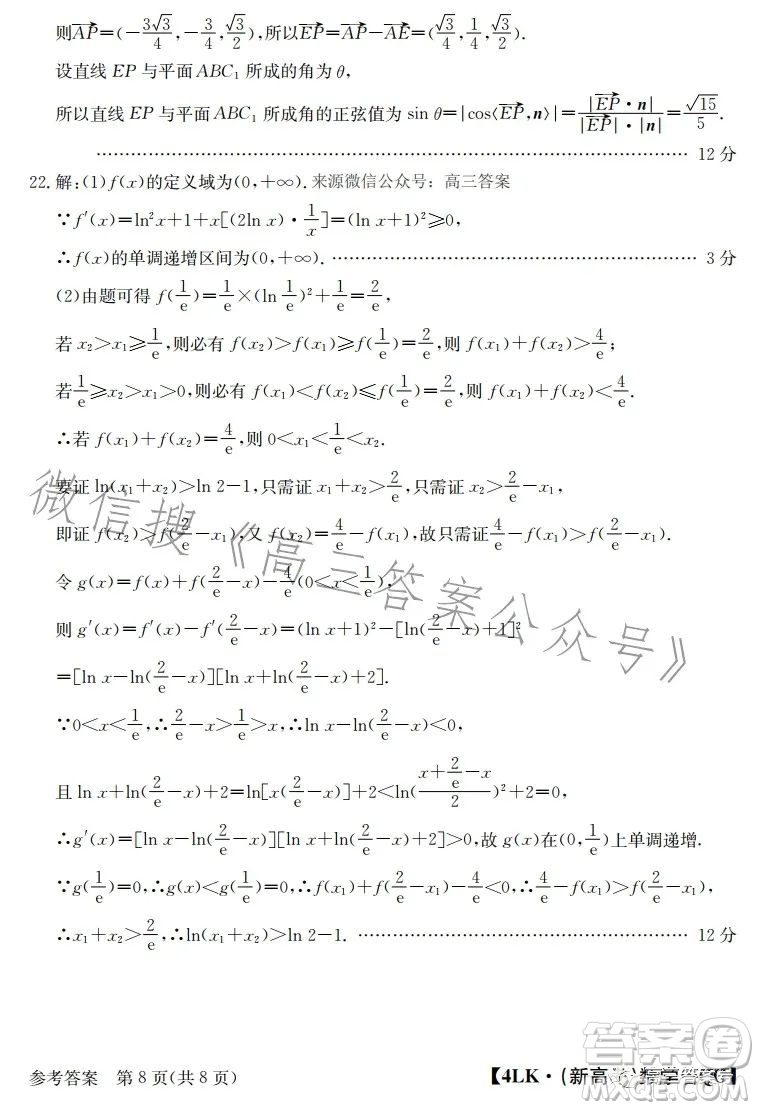 则AP=(-3√3/4,-3/4,√3/2),所以EP=AP-AE=(√3/4,1/4,√3/2).
设直线 EP 与平面 ABC₁ 所成的角为 θ,
所以直线 EP 与平面 ABC₁ 所成角的正弦值为 sin θ=|cos⟨EP,n⟩|=|EP·n|/(|EP|·|n|)=√15/5.
12 分
22.解:(1)f(x)的定义域为(0,+∞).来源微信公众号:高三答案
∵f′(x)=ln²x+1+x[(2ln x)·1/x]=(ln x+1)²≥0,
∴f(x)的单调递增区间为(0,+∞). 3 分
(2)由题可得 f(1/e)=1/e×(ln 1/e)²+1/e=2/e,
若 x₂>x₁≥1/e,则必有 f(x₂)>f(x₁)≥f(1/e)=2/e,则 f(x₁)+f(x₂)>4/e;
若1/e≥x₂>x₁>0,则必有 f(x₁)<f(x₂)≤f(1/e)=2/e,则 f(x₁)+f(x₂)<4/e.
∴若 f(x₁)+f(x₂)=4/e,则 0<x₁<1/e<x₂.
要证 ln(x₁+x₂)>ln 2-1,只需证 x₁+x₂>2/e,只需证 x₂>2/e-x₁,
即证 f(x₂)>f(2/e-x₁),又 f(x₂)=4/e-f(x₁),故只需证4/e-f(x₁)>f(2/e-x₁).
令 g(x)=f(x)+f(2/e-x)-4/e(0<x<1/e),
则 g′(x)=f′(x)-f′(2/e-x)=(ln x+1)²-[ln(2/e-x)+1]²
=[ln x-ln(2/e-x)][ln x+ln(2/e-x)+2].
∵0<x<1/e,∴2/e-x>1/e>x,∴ln x-ln(2/e-x)<0,
且 ln x+ln(2/e-x)+2=ln[x(2/e-x)]+2<ln((x+2/e-x)/2)²+2=0,
∴g′(x)=[ln x-ln(2/e-x)][ln x+ln(2/e-x)+2]>0,故 g(x)在(0,1/e)上单调递增.
∵g(1/e)=0,∴g(x)<g(1/e)=0,∴f(x₁)+f(2/e-x₁)-4/e<0,∴4/e-f(x₁)>f(2/e-x₁),
∴x₁+x₂>2/e,∴ln(x₁+x₂)>ln 2-1. 12 分
微信搜《高三答案公众号》
参考答案 第 8 页(共 8 页)
【4LK·(新高考)
答案圈